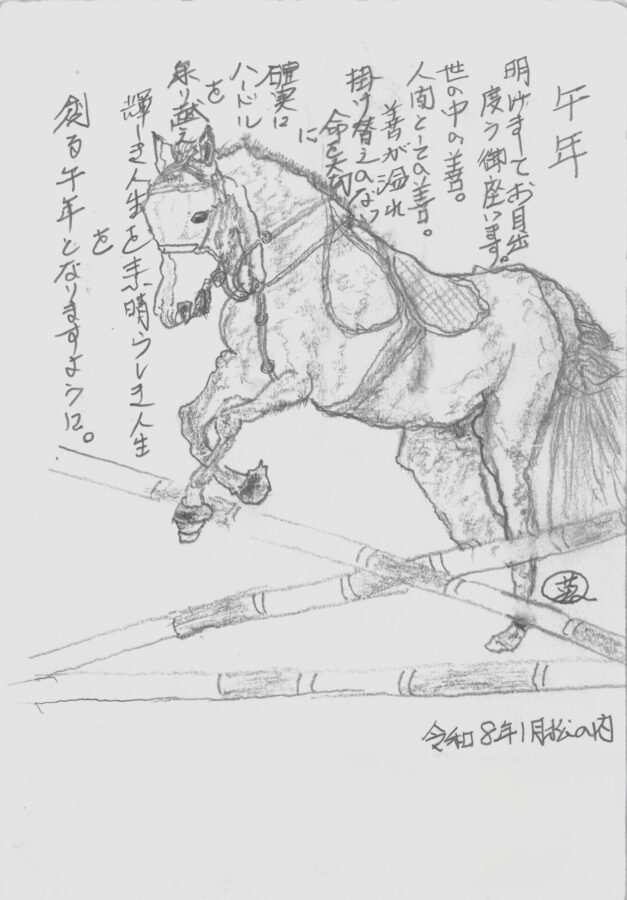 午年
明けましてお目出
度う御座います。
世の中の善。
人間としての善。
善が溢れ
掛け替えのない
命を大切
に
確実に
ハードル
を
乗り越え
輝しき人生を素晴らしき人生
を
創る午年となりますように。
令和8年1月松の内